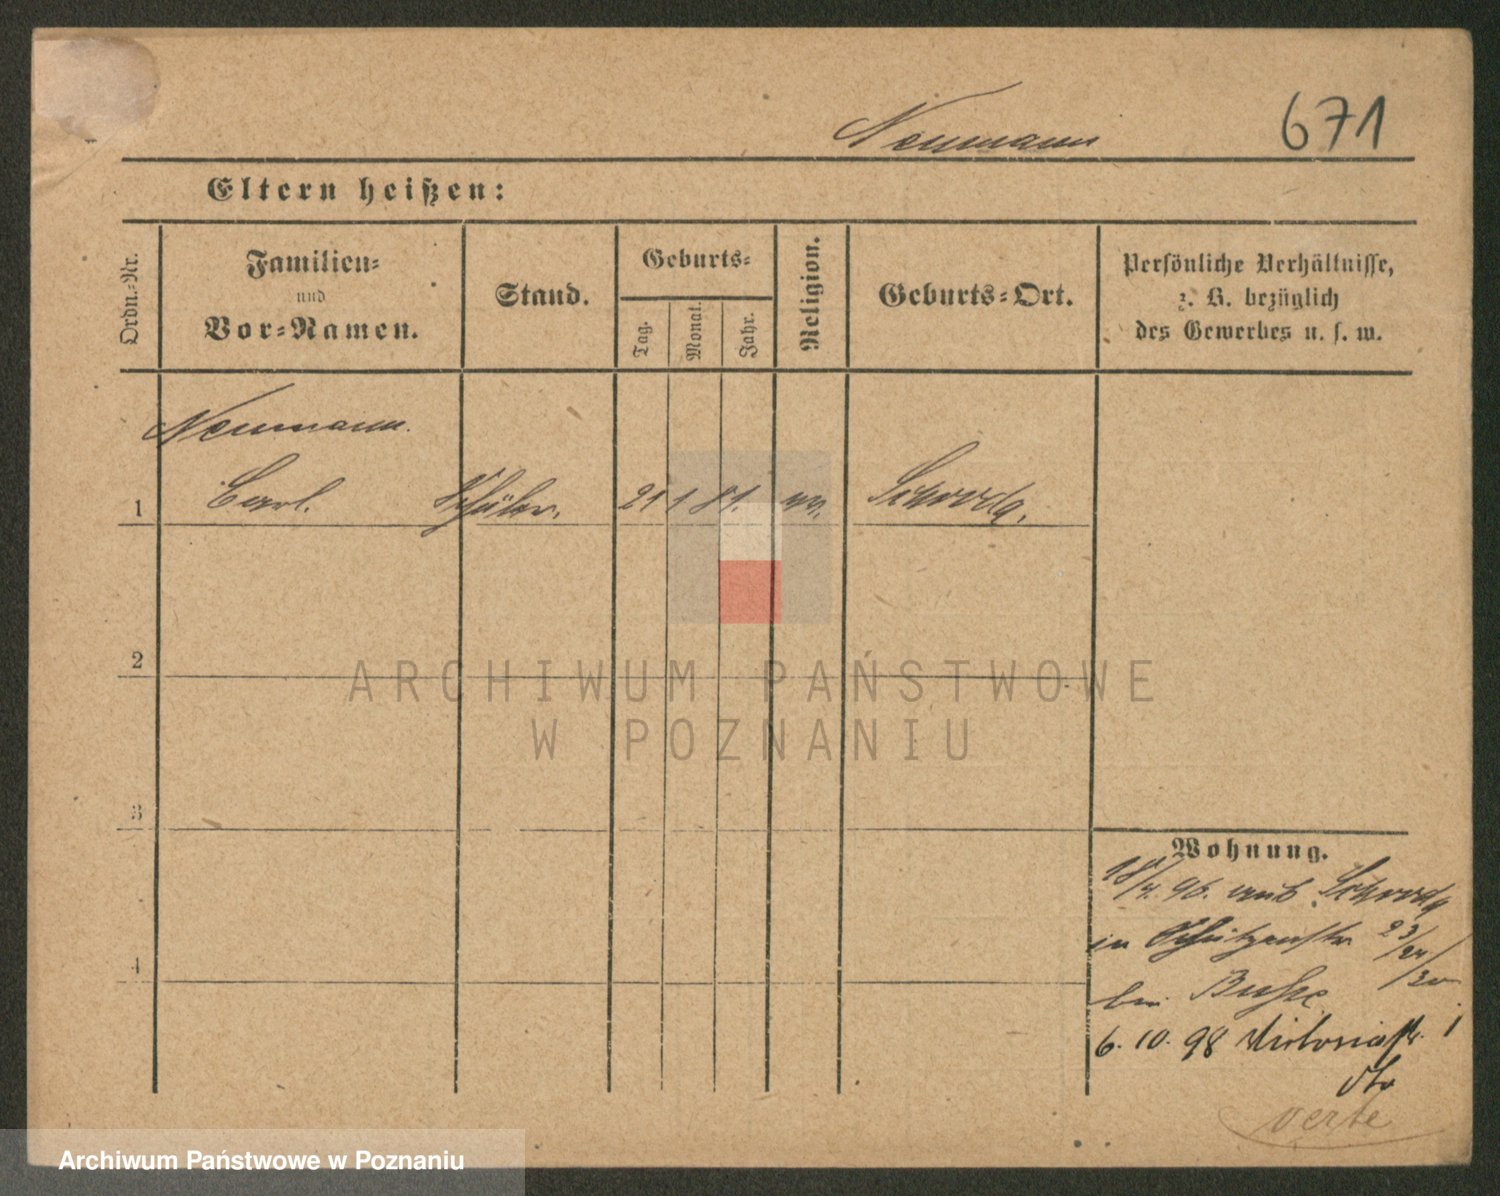 Neumann 671
Eltern heißen:
Ordn.-Nr.
Familien-
und
Vor-Namen.
Stand.
Geburts-
Tag.
Monat.
Jahr.
Religion.
Geburts-Ort.
Persönliche Verhältnisse,
z. B. bezüglich
des Gewerbes u. s. w.
Neumann.
1 Carl. Schüler. 21 1 81. Schroda.
2
3
4
Wohnung.
18/4. 96. aus Schroda
in Schützenstr 23/24
bei
6. 10. 98 Victoriastr. 1
verte
ARCHIWUM PAŃSTWOWE
W POZNANIU
Archiwum Państwowe w Poznaniu